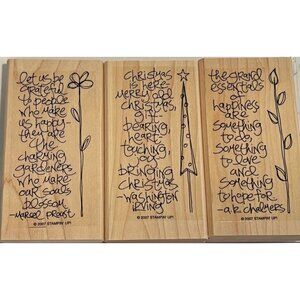 let us be
grateful
to people
who make
us happy-
they are
the
charming
gardeners
who make
our souls
blossom.
-marcel proust
© 2007 STAMPIN' UP!
christmas
is here-
merry old
christmas,
gift-
bearing,
heart-
touching,
joy-
bringing
christmas
-washington
irving
© 2007 STAMPIN' UP!
the grand
essentials
of
happiness
are
something
to do,
something
to love
and
something
to hope for
-a.k. chalmers
© 2007 STAMPIN' UP!